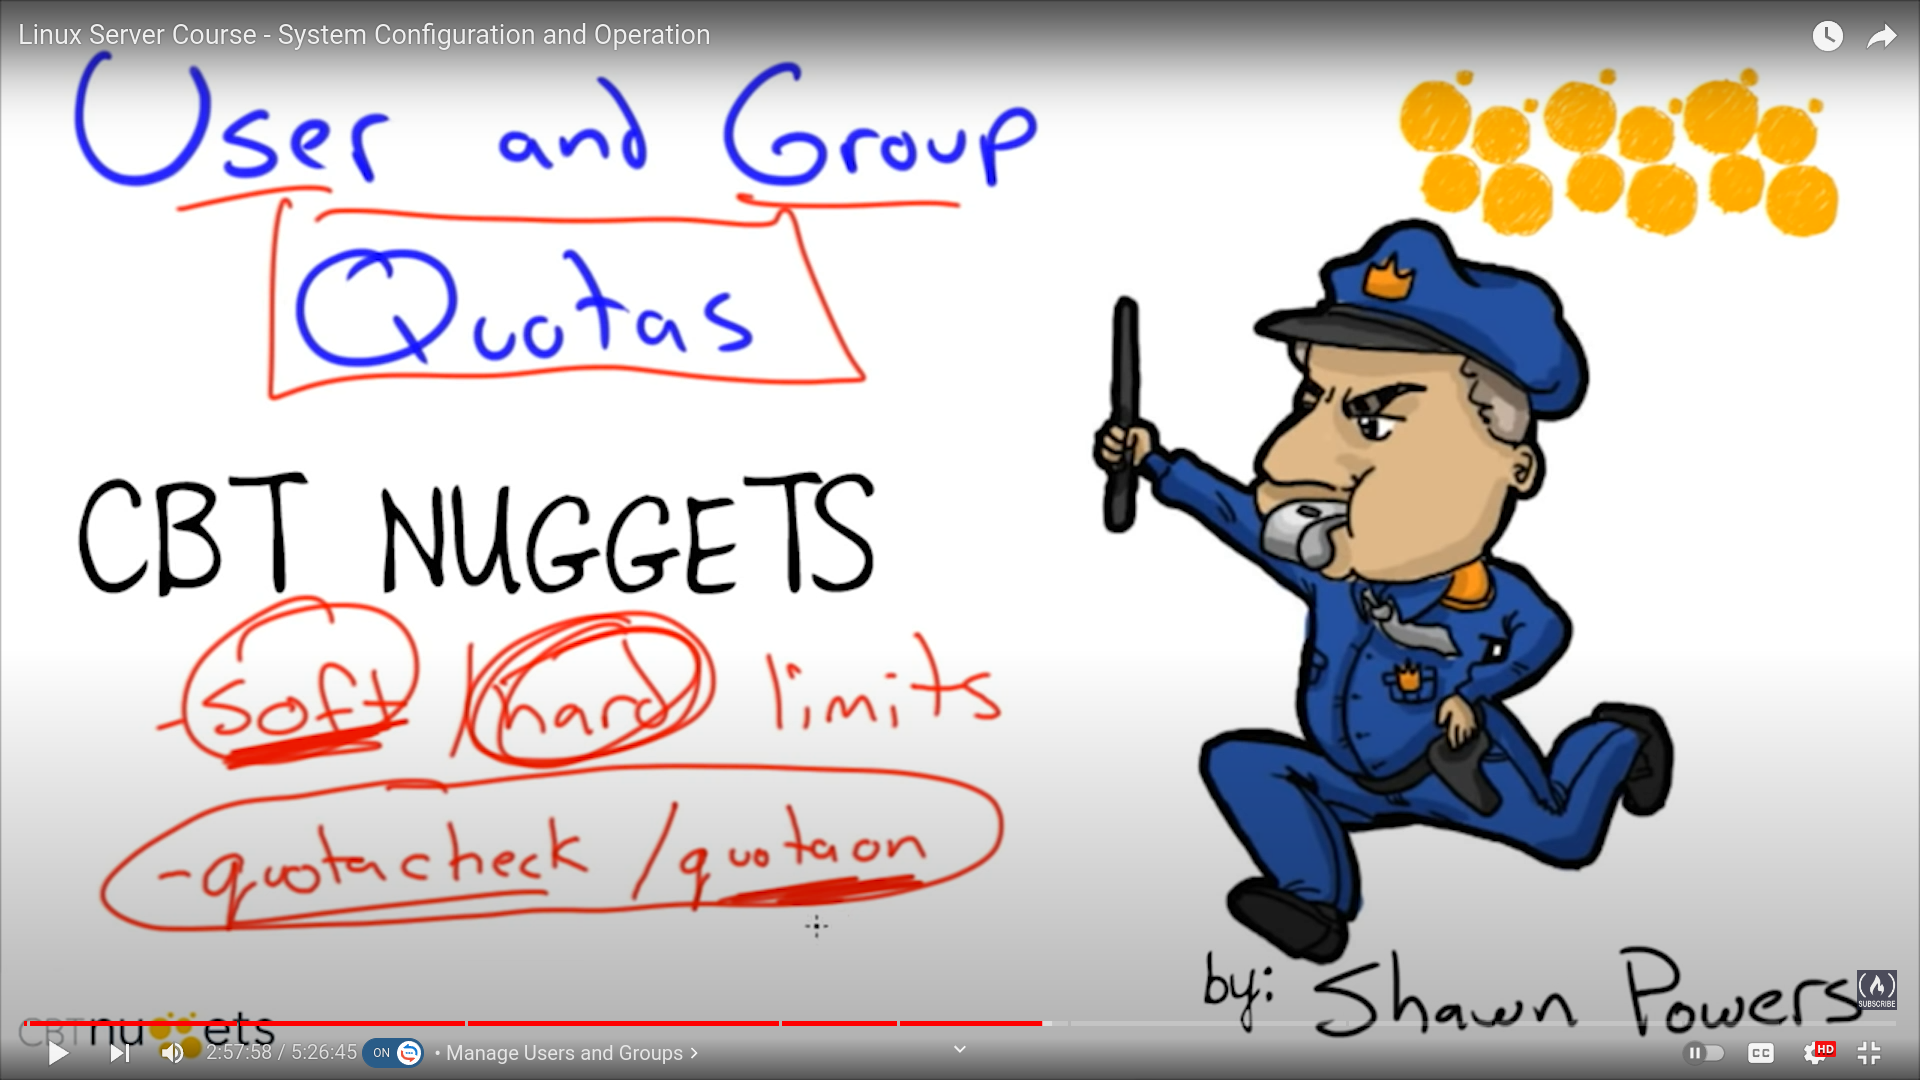 Linux Server Course - System Configuration and Operation
User and Group
Quotas
CBT NUGGETS
- soft / hard limits
- quotacheck / quotaon
by: Shawn Powers
SUBSCRIBE
CBTnuggets
2:57:58 / 5:26:45 ON • Manage Users and Groups >
CC HD